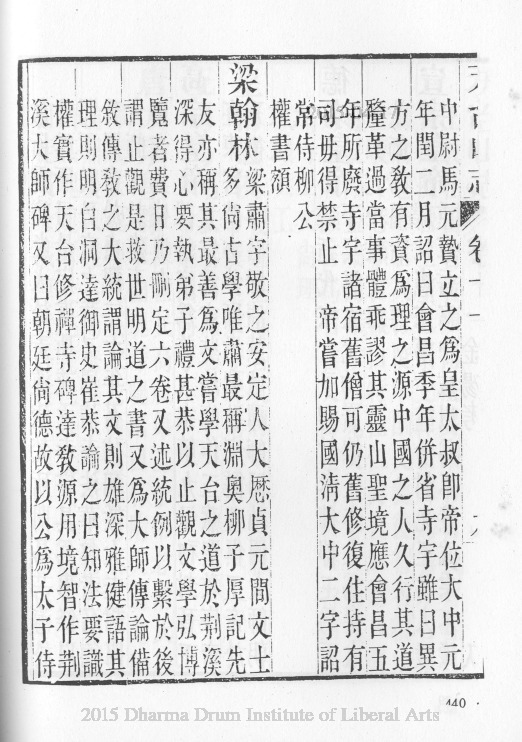 天台山志 卷十一
中尉馬元贄立之為皇太叔卽帝位大中元
年閏二月詔曰會昌季年併省寺宇雖曰異
方之教有資為理之源中國之人久行其道
釐革過當事體乖謬其靈山聖境應會昌五
年所廢寺宇諸宿舊僧可仍舊修復住持有
司毋得禁止 帝嘗加賜國淸大中二字詔
常侍柳公
權書額
梁翰林 梁肅字敬之安定人大厯貞元間文士
多尙古學唯肅最稱淵奧柳子厚記先
友亦稱其最善為文嘗學天台之道於荆溪
深得心要執弟子禮甚恭以止觀文學弘博
覽者費日乃刪定六卷又述統例以繫於後
謂止觀是救世明道之書又為大師傳論備
敘傳教之大統謂論其文則雄深雅健語其
理則明白洞達御史崔恭論之曰知法要識
權實作天台修禪寺碑達教源用境智作荆
溪大師碑又曰朝廷尙德故以公為太子侍
440
2015 Dharma Drum Institute of Liberal Arts